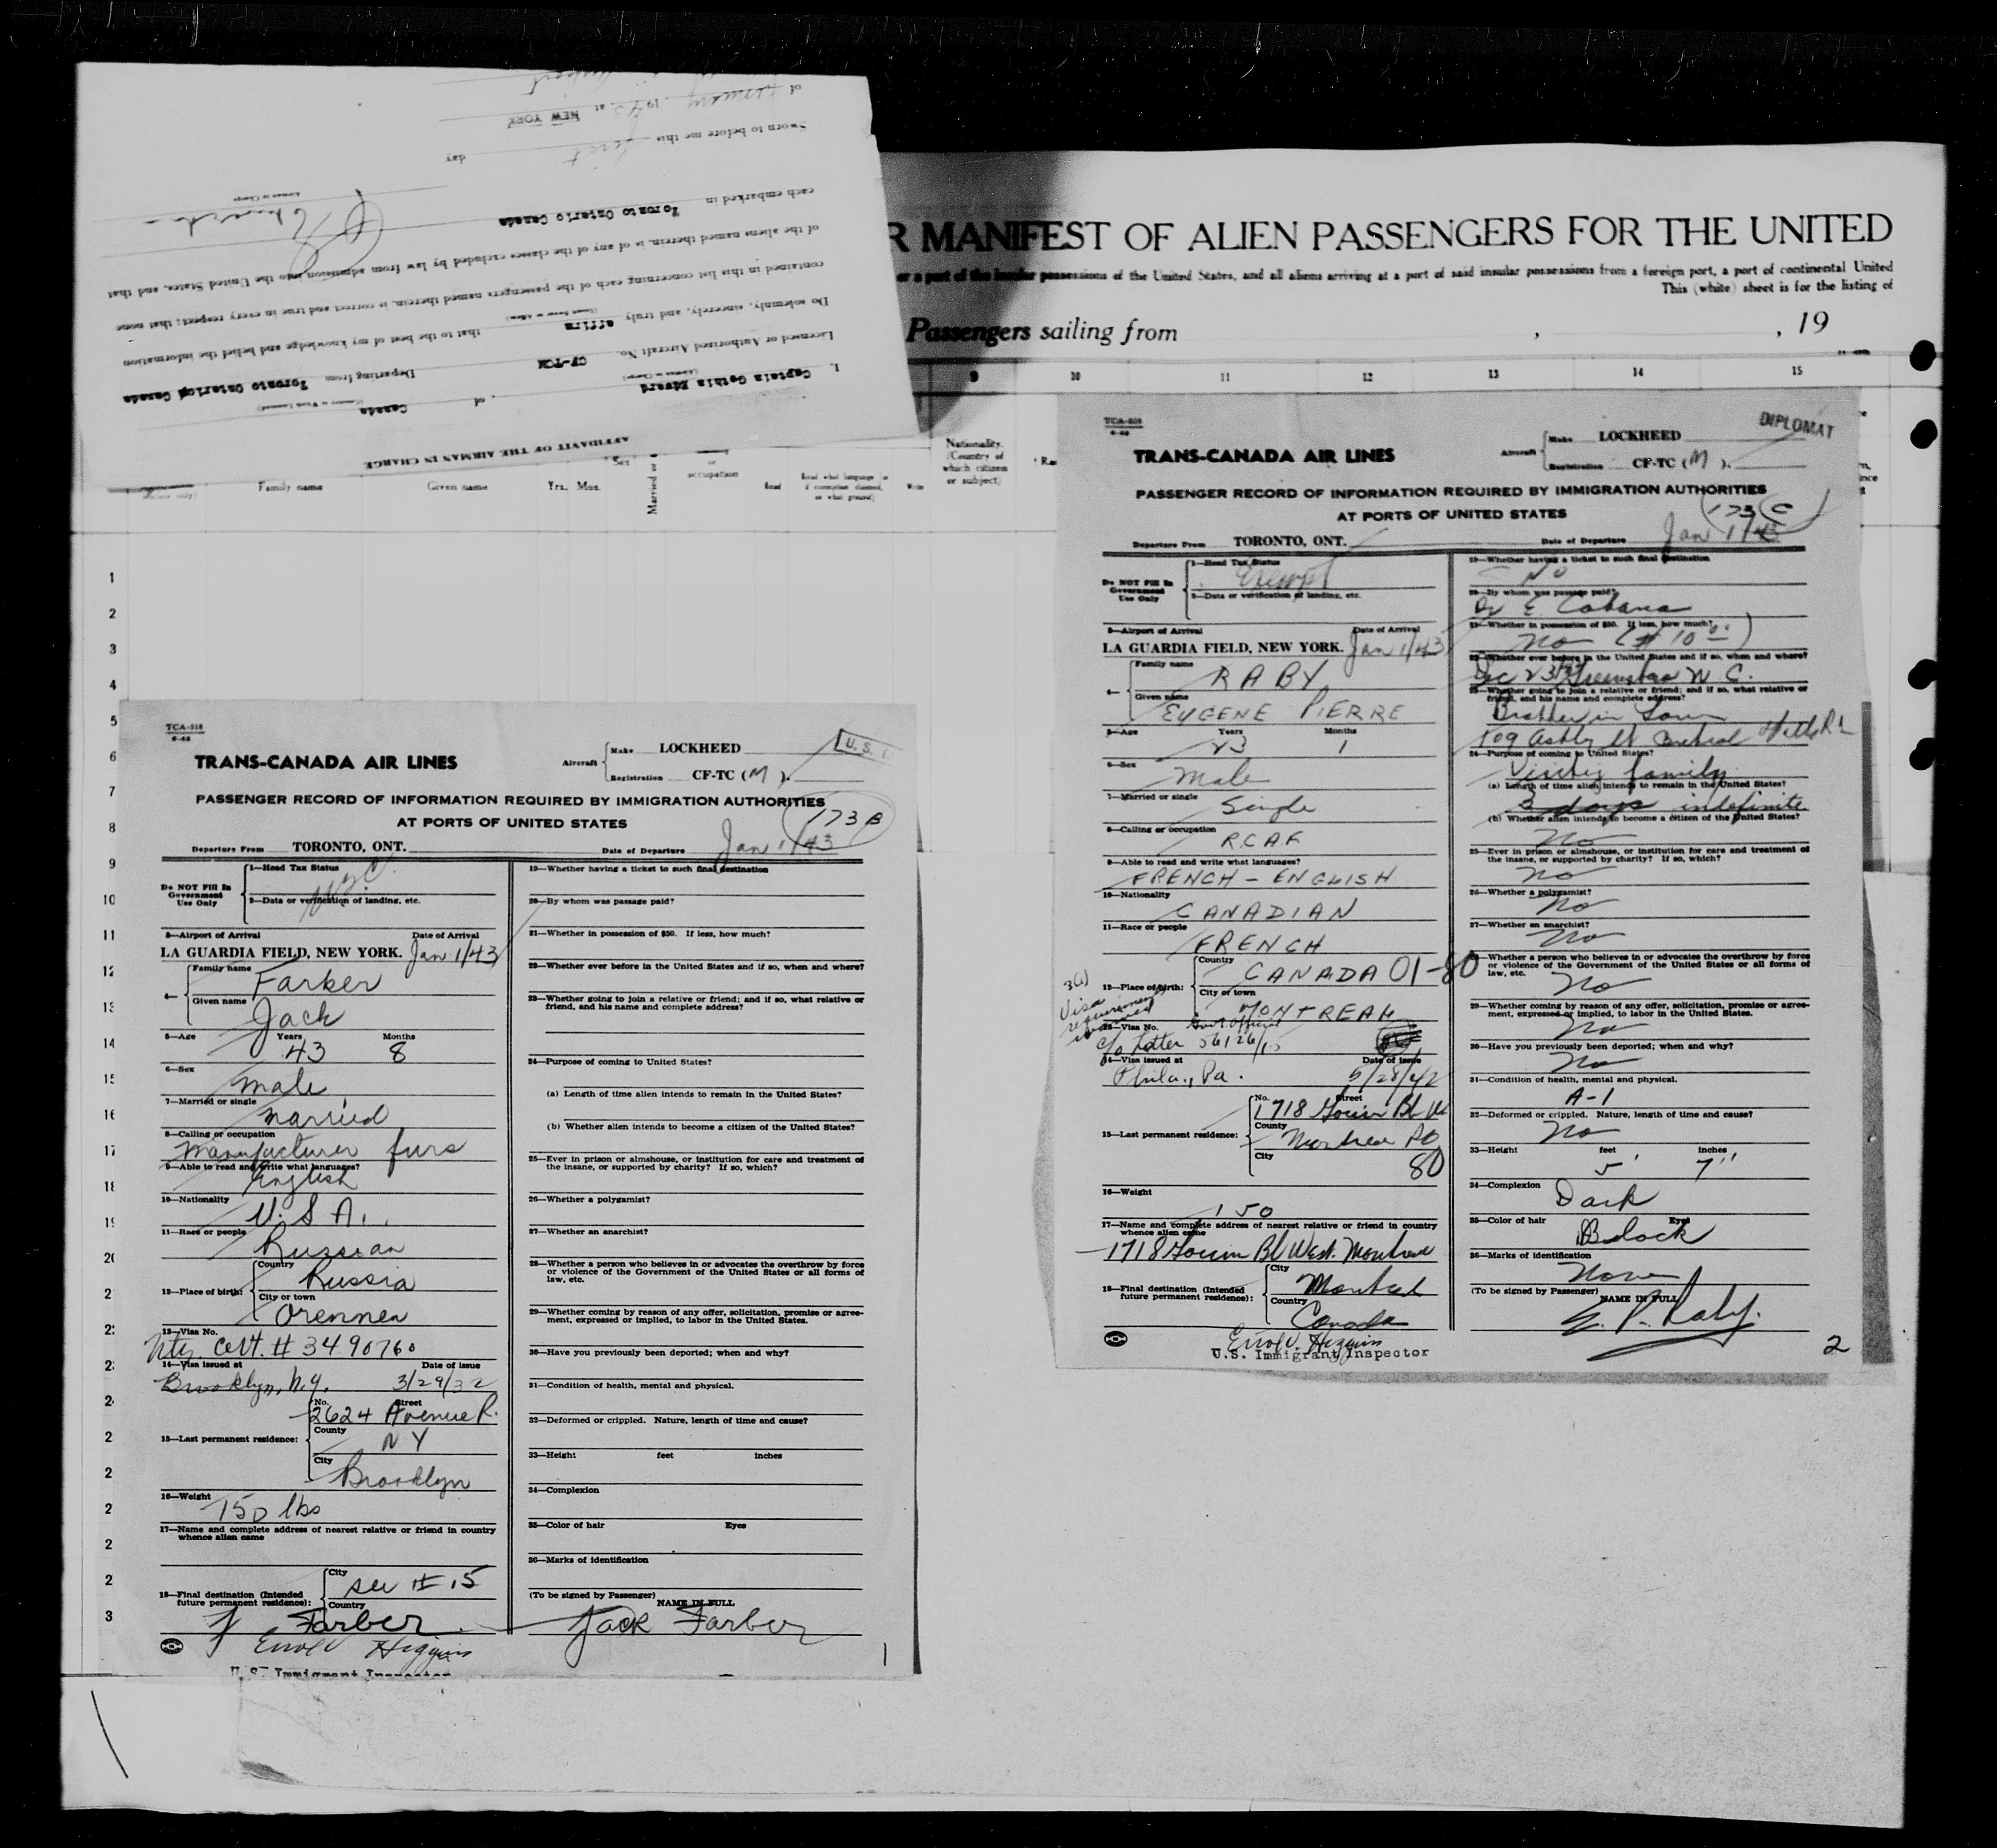 AFFIDAVIT OF THE AIRMAN IN CHARGE
I, Captain Gethin Edward of Canada
Licensed or Authorized Aircraft No. CF-TCM Departing from Toronto Ontario Canada
Do solemnly, sincerely, and truly affirm that to the best of my knowledge and belief the information
contained in this list concerning each of the passengers named therein, is correct and true in every respect; that none
of the aliens named therein, is of any of the classes excluded by law from admission into the United States, and that
each embarked in Toronto Ontario Canada
Airman in Charge
Sworn to before me this first day
of January, 1943, at NEW YORK
R MANIFEST OF ALIEN PASSENGERS FOR THE UNITED
or a part of the insular possessions of the United States, and all aliens arriving at a port of said insular possessions from a foreign port, a part of continental United
This (white) sheet is for the listing of
Passengers sailing from , , 19
9 10 11 12 13 14 15
Family name Given name Yrs. Mos. Sex Married or occupation
Read Read what language for if exemption claimed, on what ground) Write
Nationality. (Country of which citizen or subject)
1
2
3
4
5
6
7
8
9
10
11
12
13
14
15
16
17
18
TCA-518
6-42
TRANS-CANADA AIR LINES
Aircraft Make LOCKHEED
Registration CF-TC (M).
U.S.
PASSENGER RECORD OF INFORMATION REQUIRED BY IMMIGRATION AUTHORITIES
AT PORTS OF UNITED STATES
173 B
Departure From TORONTO, ONT. Date of Departure Jan 1/43
Do NOT Fill In Government Use Only
1—Head Tax Status
2—Data or verification of landing, etc.
3—Airport of Arrival Date of Arrival
LA GUARDIA FIELD, NEW YORK. Jan 1/43
4— Family name Farber
Given name Jack
5—Age Years 43 Months 8
6—Sex male
7—Married or single married
8—Calling or occupation
Manufacturer furs
9—Able to read and write what languages?
English
10—Nationality U.S.A.
11—Race or people Russian
12—Place of birth: Country Russia
City or town
13—Visa No.
Ntz. Cert. # 3490760
14—Visa issued at Date of issue
Brooklyn, N.Y. 3/29/32
15—Last permanent residence: No. Street 2624 Avenue R.
County NY
City Brooklyn
16—Weight 150 lbs
17—Name and complete address of nearest relative or friend in country
whence alien came
18—Final destination (Intended future permanent residence): City see # 15
Country
J Farber
Errol V. Higgins
U.S. Immigrant Inspector
19—Whether having a ticket to such final destination
20—By whom was passage paid?
21—Whether in possession of $50. If less, how much?
22—Whether ever before in the United States and if so, when and where?
23—Whether going to join a relative or friend; and if so, what relative or
friend, and his name and complete address?
24—Purpose of coming to United States?
(a) Length of time alien intends to remain in the United States?
(b) Whether alien intends to become a citizen of the United States?
25—Ever in prison or almshouse, or institution for care and treatment of
the insane, or supported by charity? If so, which?
26—Whether a polygamist?
27—Whether an anarchist?
28—Whether a person who believes in or advocates the overthrow by force
or violence of the Government of the United States or all forms of
law, etc.
29—Whether coming by reason of any offer, solicitation, promise or agree-
ment, expressed or implied, to labor in the United States.
30—Have you previously been deported; when and why?
31—Condition of health, mental and physical.
32—Deformed or crippled. Nature, length of time and cause?
33—Height feet inches
34—Complexion
35—Color of hair Eyes
36—Marks of identification
(To be signed by Passenger)
NAME IN FULL
Jack Farber
1
TCA-518
6-42
DIPLOMAT
TRANS-CANADA AIR LINES
Aircraft Make LOCKHEED
Registration CF-TC (M).
PASSENGER RECORD OF INFORMATION REQUIRED BY IMMIGRATION AUTHORITIES
AT PORTS OF UNITED STATES
173 C
Departure From TORONTO, ONT. Date of Departure Jan 1/43
Do NOT Fill In Government Use Only
1—Head Tax Status Exempt
2—Data or verification of landing, etc.
3—Airport of Arrival Date of Arrival
LA GUARDIA FIELD, NEW YORK. Jan 1/43
4— Family name RABY
Given name EUGENE PIERRE
5—Age Years 23 Months 1
6—Sex male
7—Married or single Single
8—Calling or occupation RCAF
9—Able to read and write what languages?
FRENCH - ENGLISH
10—Nationality CANADIAN
11—Race or people FRENCH
12—Place of birth: Country CANADA 01-80
City or town MONTREAL
3(1) Visa requirement waived
13—Visa No. Govt Official
c/o Letter 56126/1
14—Visa issued at Date of issue
Phila., Pa. 5/28/42
15—Last permanent residence: No. Street 1718 Gouin Bl W
County Montreal PQ
City 80
16—Weight 150
17—Name and complete address of nearest relative or friend in country
whence alien came
1718 Gouin Bl West. Montreal
18—Final destination (Intended future permanent residence): City Montreal
Country Canada
Errol V. Higgins
U.S. Immigrant Inspector
19—Whether having a ticket to such final destination
No
20—By whom was passage paid?
E. Cabana
21—Whether in possession of $50. If less, how much?
No ($10.00)
22—Whether ever before in the United States and if so, when and where?
Dec 23 Greensboro N C.
23—Whether going to join a relative or friend; and if so, what relative or
friend, and his name and complete address?
Brother in Law
109 Ashby St Central Falls R I
24—Purpose of coming to United States?
Visiting family
(a) Length of time alien intends to remain in the United States?
3 days indefinite
(b) Whether alien intends to become a citizen of the United States?
No
25—Ever in prison or almshouse, or institution for care and treatment of
the insane, or supported by charity? If so, which?
No
26—Whether a polygamist?
No
27—Whether an anarchist?
No
28—Whether a person who believes in or advocates the overthrow by force
or violence of the Government of the United States or all forms of
law, etc.
No
29—Whether coming by reason of any offer, solicitation, promise or agree-
ment, expressed or implied, to labor in the United States.
No
30—Have you previously been deported; when and why?
No
31—Condition of health, mental and physical.
A-1
32—Deformed or crippled. Nature, length of time and cause?
No
33—Height feet 5' inches 7"
34—Complexion Dark
35—Color of hair Eyes
Black
36—Marks of identification
None
(To be signed by Passenger)
NAME IN FULL
E. P. Raby.
2